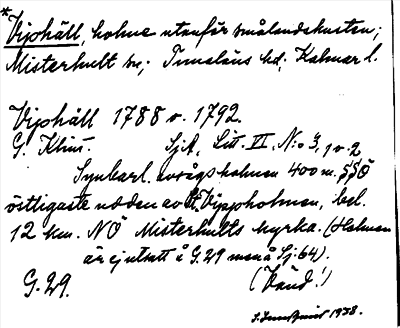 * Vip­häll, holme utanför smålandskusten;
Misterhult sn; Tunaläns hd; Kalmar l.
Viphäll 1788 o. 1792.
G. Klint. Sjk, Litt. VI, N:o 3, 1 o. 2
Synbarl. avsågs holmen 400 m. SSÖ
östligaste udden av St. Vippholmen, bel.
12 km. NÖ Misterhults kyrka. (Holmen
är ej utsatt å G.29 men å Sj.64).
G.29. (Vänd!)
1938.